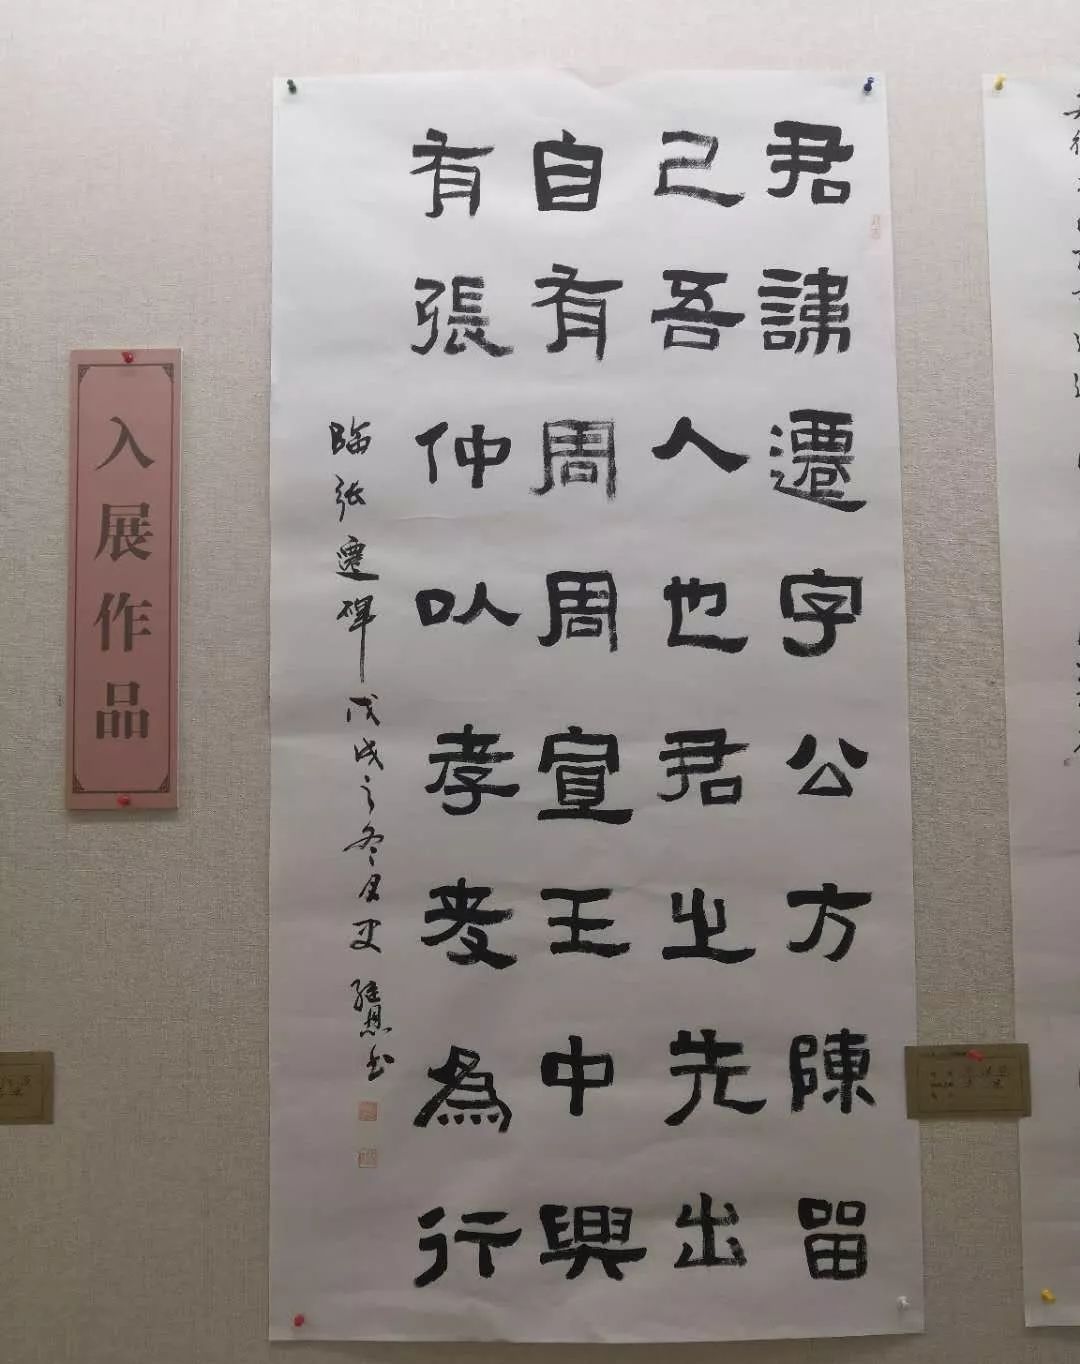 君諱遷字公方陳留
己吾人也君之先出
自有周周宣王中興
有張仲以孝友為行
臨張遷碑戊戌之冬月史繼恩书
入展作品